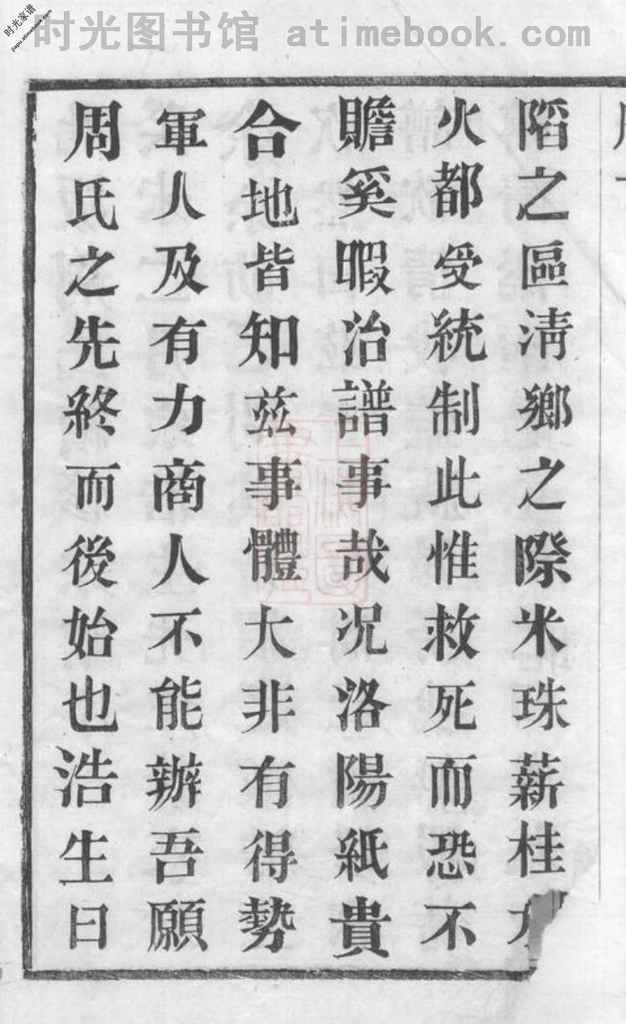 时光图书馆 atimebook.com
时光家谱
陷之區淸鄉之際米珠薪桂
火都受統制此惟救死而恐不
贍奚暇治譜事哉況洛陽紙貴
合地皆知茲事體大非有得勢
軍人及有力商人不能辦吾願
周氏之先終而後始也浩生曰